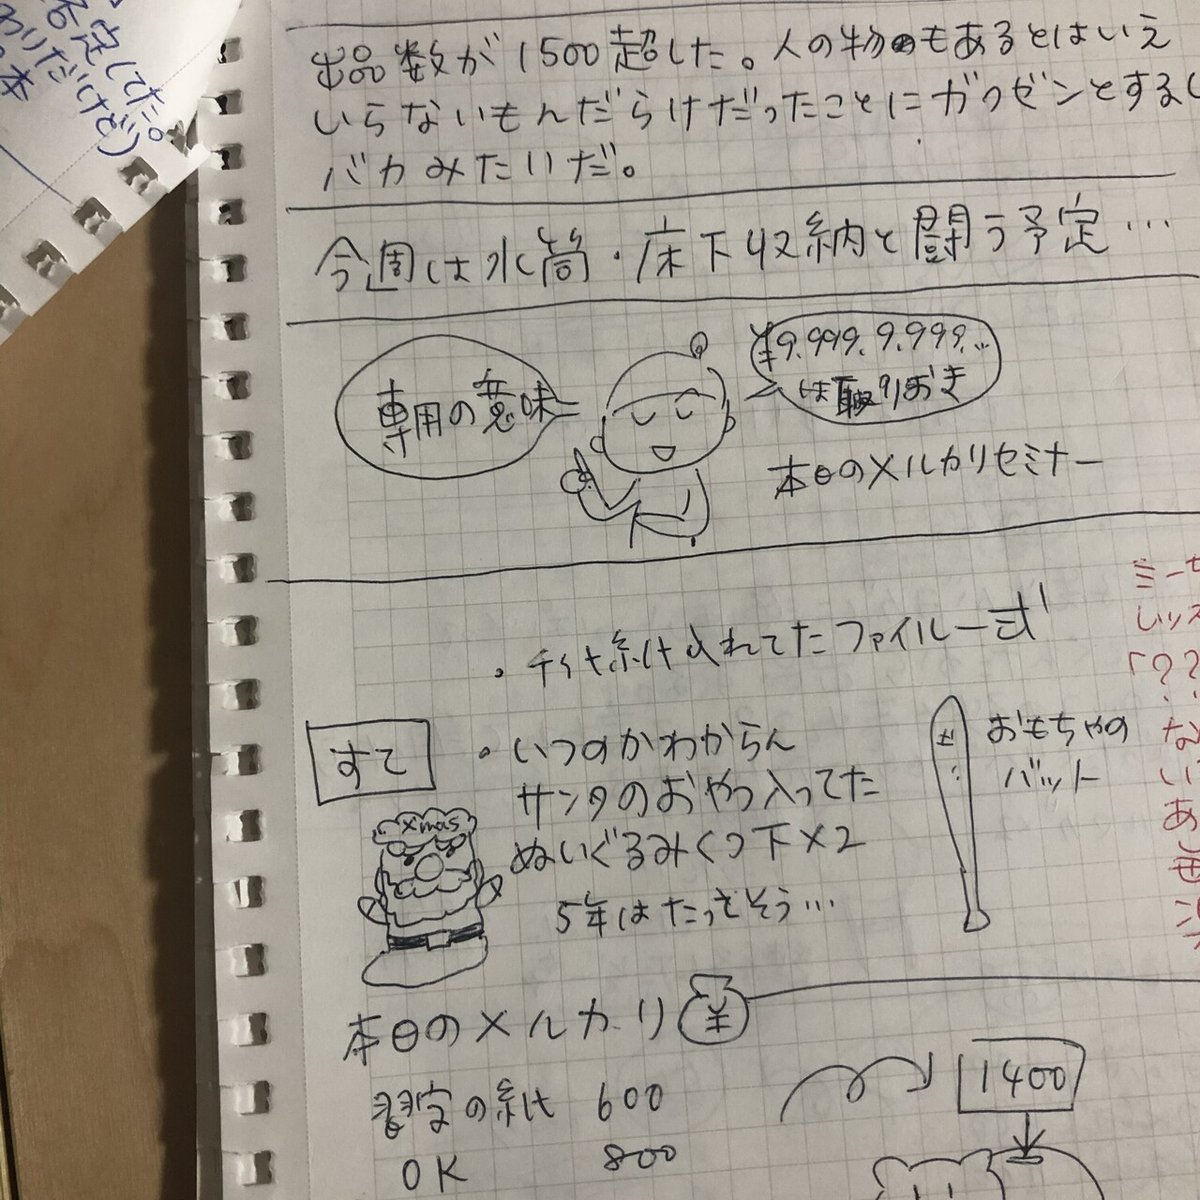 否定してた。
わりだけど)
本
出品数が1500超した。人の物もあるとはいえ
いらないもんだらけだったことにガクゼンとするし
バカみたいだ。
今週は水筒・床下収納と闘う予定…
専用の意味
¥9.999.9.999…
は取りおき
本日のメルカリセミナー
・チケ紙け入れてたファイル一式
すて
・いつのかわからん
サンタのおやつ入ってた
ぬいぐるみくつ下×2
5年はたってそう…
Xmas
おもちゃの
バット
ミーセ
レッス
「??
な
い
あ
本日のメルカリ ¥
習字の紙 600
OK 800
1400